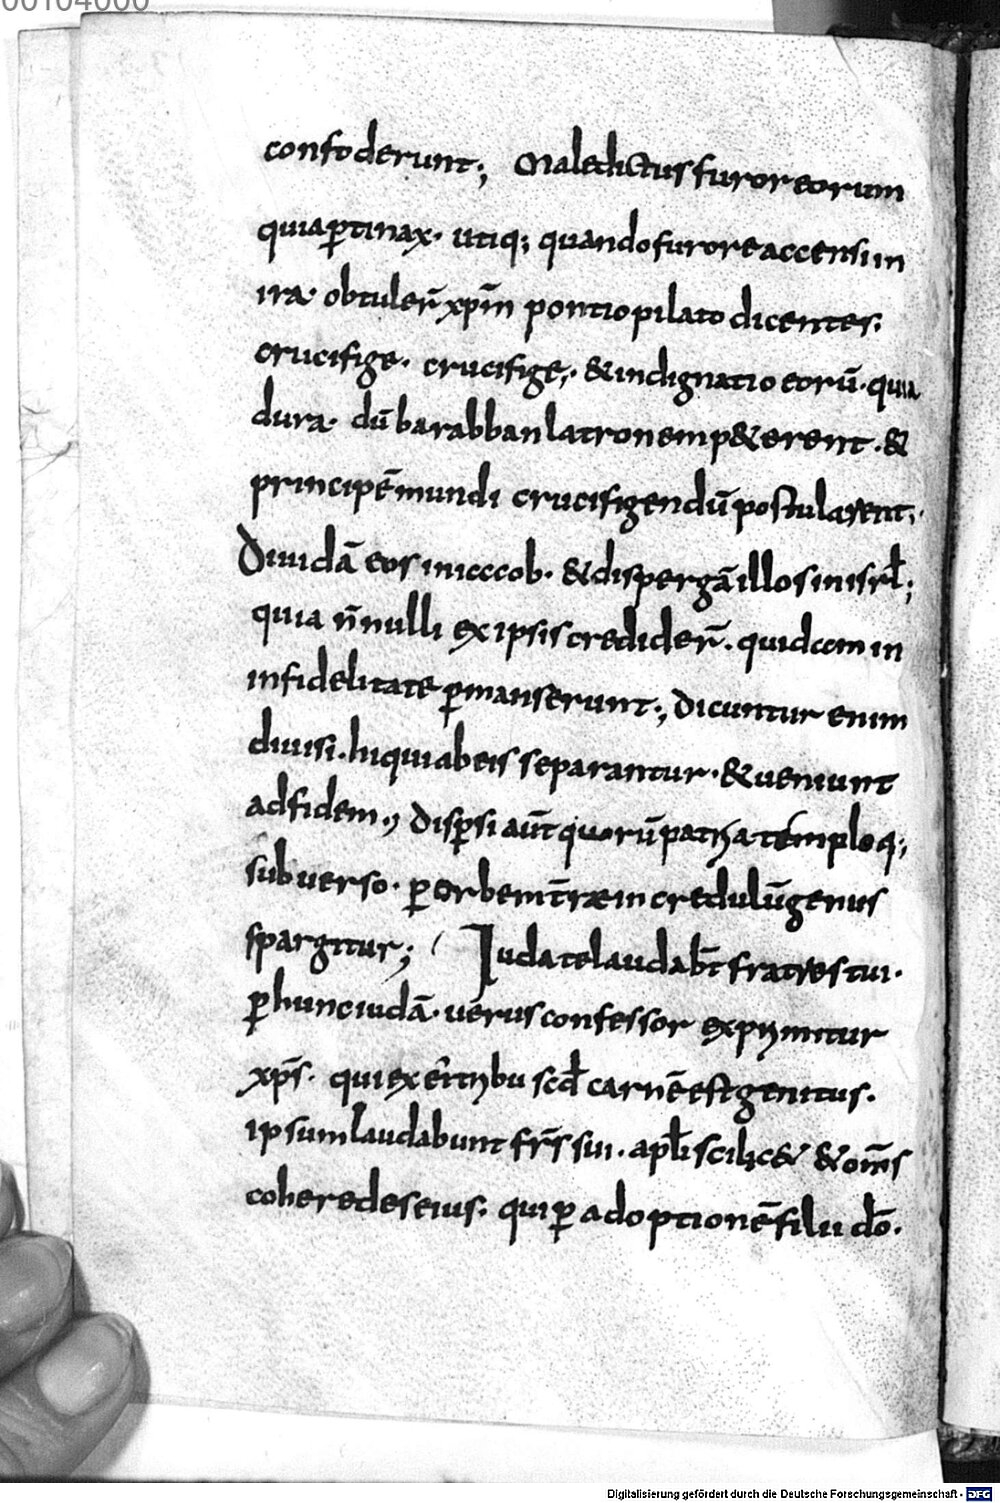 00104000
confoderunt; Maledictus furor eorum
quia ꝑtinax. utiq; quando furore accensi in
ira. obtuleꝛ̄ xp̄m pontio pilato dicentes.
crucifige. crucifige;. & indignatio eorū. quia
dura. dū barabban latronem p&erent. &
principē mundi crucifigendū postularent;.
Diuidā eos in iacob. & dispergā illos in isrl̄;
quia n̄nulli ex ipsis credideꝛ̄. quidam in
infidelitate ꝑmanserunt;, dicuntur enim
diuisi. hi qui ab eis separantur. & ueniunt
ad fidem., disp̄si aūt quorū patria templo q;
subuerso. ꝑ orbem t̄ræ incredulū genus
spargitur; Iuda te laudab̄t fratres tui.
ꝑ hunc iudā. uerus confessor exprimitur
xp̄s. qui ex ei tribu scd̄ carnē est genitus.
ipsum laudabunt fr̄s sui. apl̄i scilic& & om̄s
coheredes eius. qui ꝑ adoptionē filii do̅.
Digitalisierung gefördert durch die Deutsche Forschungsgemeinschaft - DFG